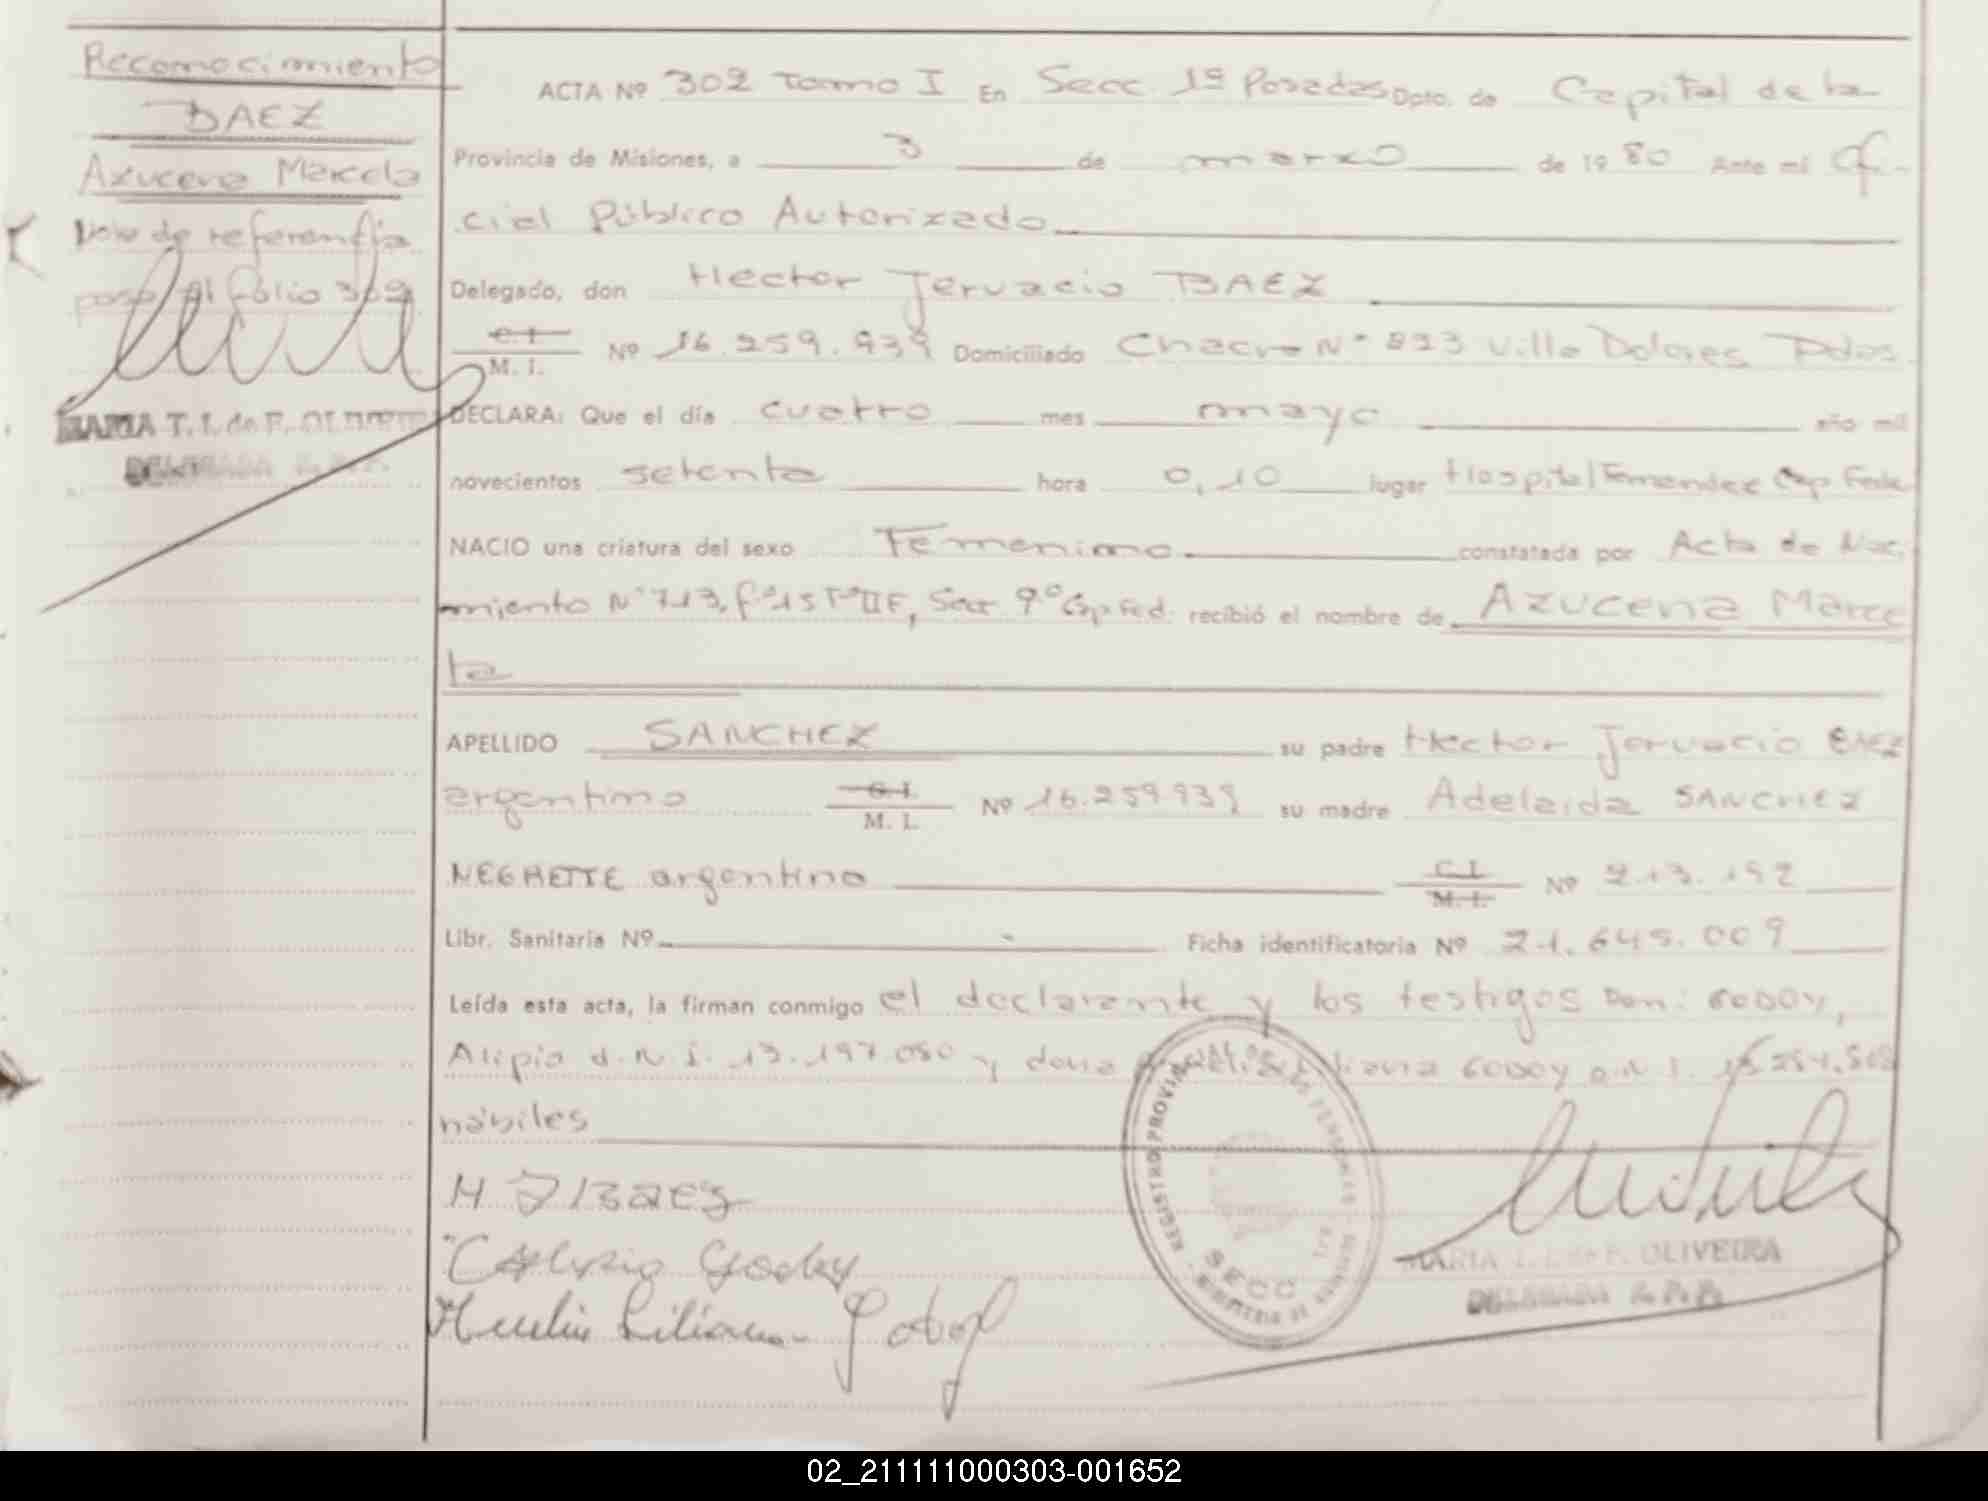 Reconocimiento
BAEZ
Azucena Marcela
Nota de referencia
pasa al folio 302
MARIA T. I. de F. OLIVEIRA
DELEGADA R. P. P.
ACTA Nº 302 Tomo I En Secc 1ª Posadas Dpto. de Capital de la
Provincia de Misiones, a 3 de marzo de 1980 Ante mi Ofi-
cial Público Autorizado
Delegado, don Hector Jervacio BAEZ
C. I.
M. I. Nº 16.259.939 Domiciliado Chacra Nº 823 Villa Dolores Pdas.
DECLARA: Que el día cuatro mes mayo año mil
novecientos setenta hora 0,10 lugar Hospital Fernandez Cap Fede
NACIO una criatura del sexo Femenino constatada por Acta de Naci
miento Nº 713, fº 15 Tº II F, Secc 9º Cap Fed. recibió el nombre de Azucena Marce
la
APELLIDO SANCHEZ su padre Hector Jervacio BAEZ
argentino C. I.
M. I. Nº 16.259939 su madre Adelaida SANCHEZ
NEGRETTE argentina C. I.
M. I. Nº 213.192
Libr. Sanitaria Nº - Ficha identificatoria Nº 21.645.009
Leída esta acta, la firman conmigo el declarante y los testigos Don: GODOY,
Alipio d.N.I. 13.197.080 y doña Liliana GODOY D.N.I.
hábiles
H J Baez
Godoy
Liliana Godoy
REGISTRO PROVINCIAL DE LAS PERSONAS
SECC
MINISTERIO DE GOBIERNO
MARIA T. I. de F. OLIVEIRA
DELEGADA R. P. P.
02_211111000303-001652